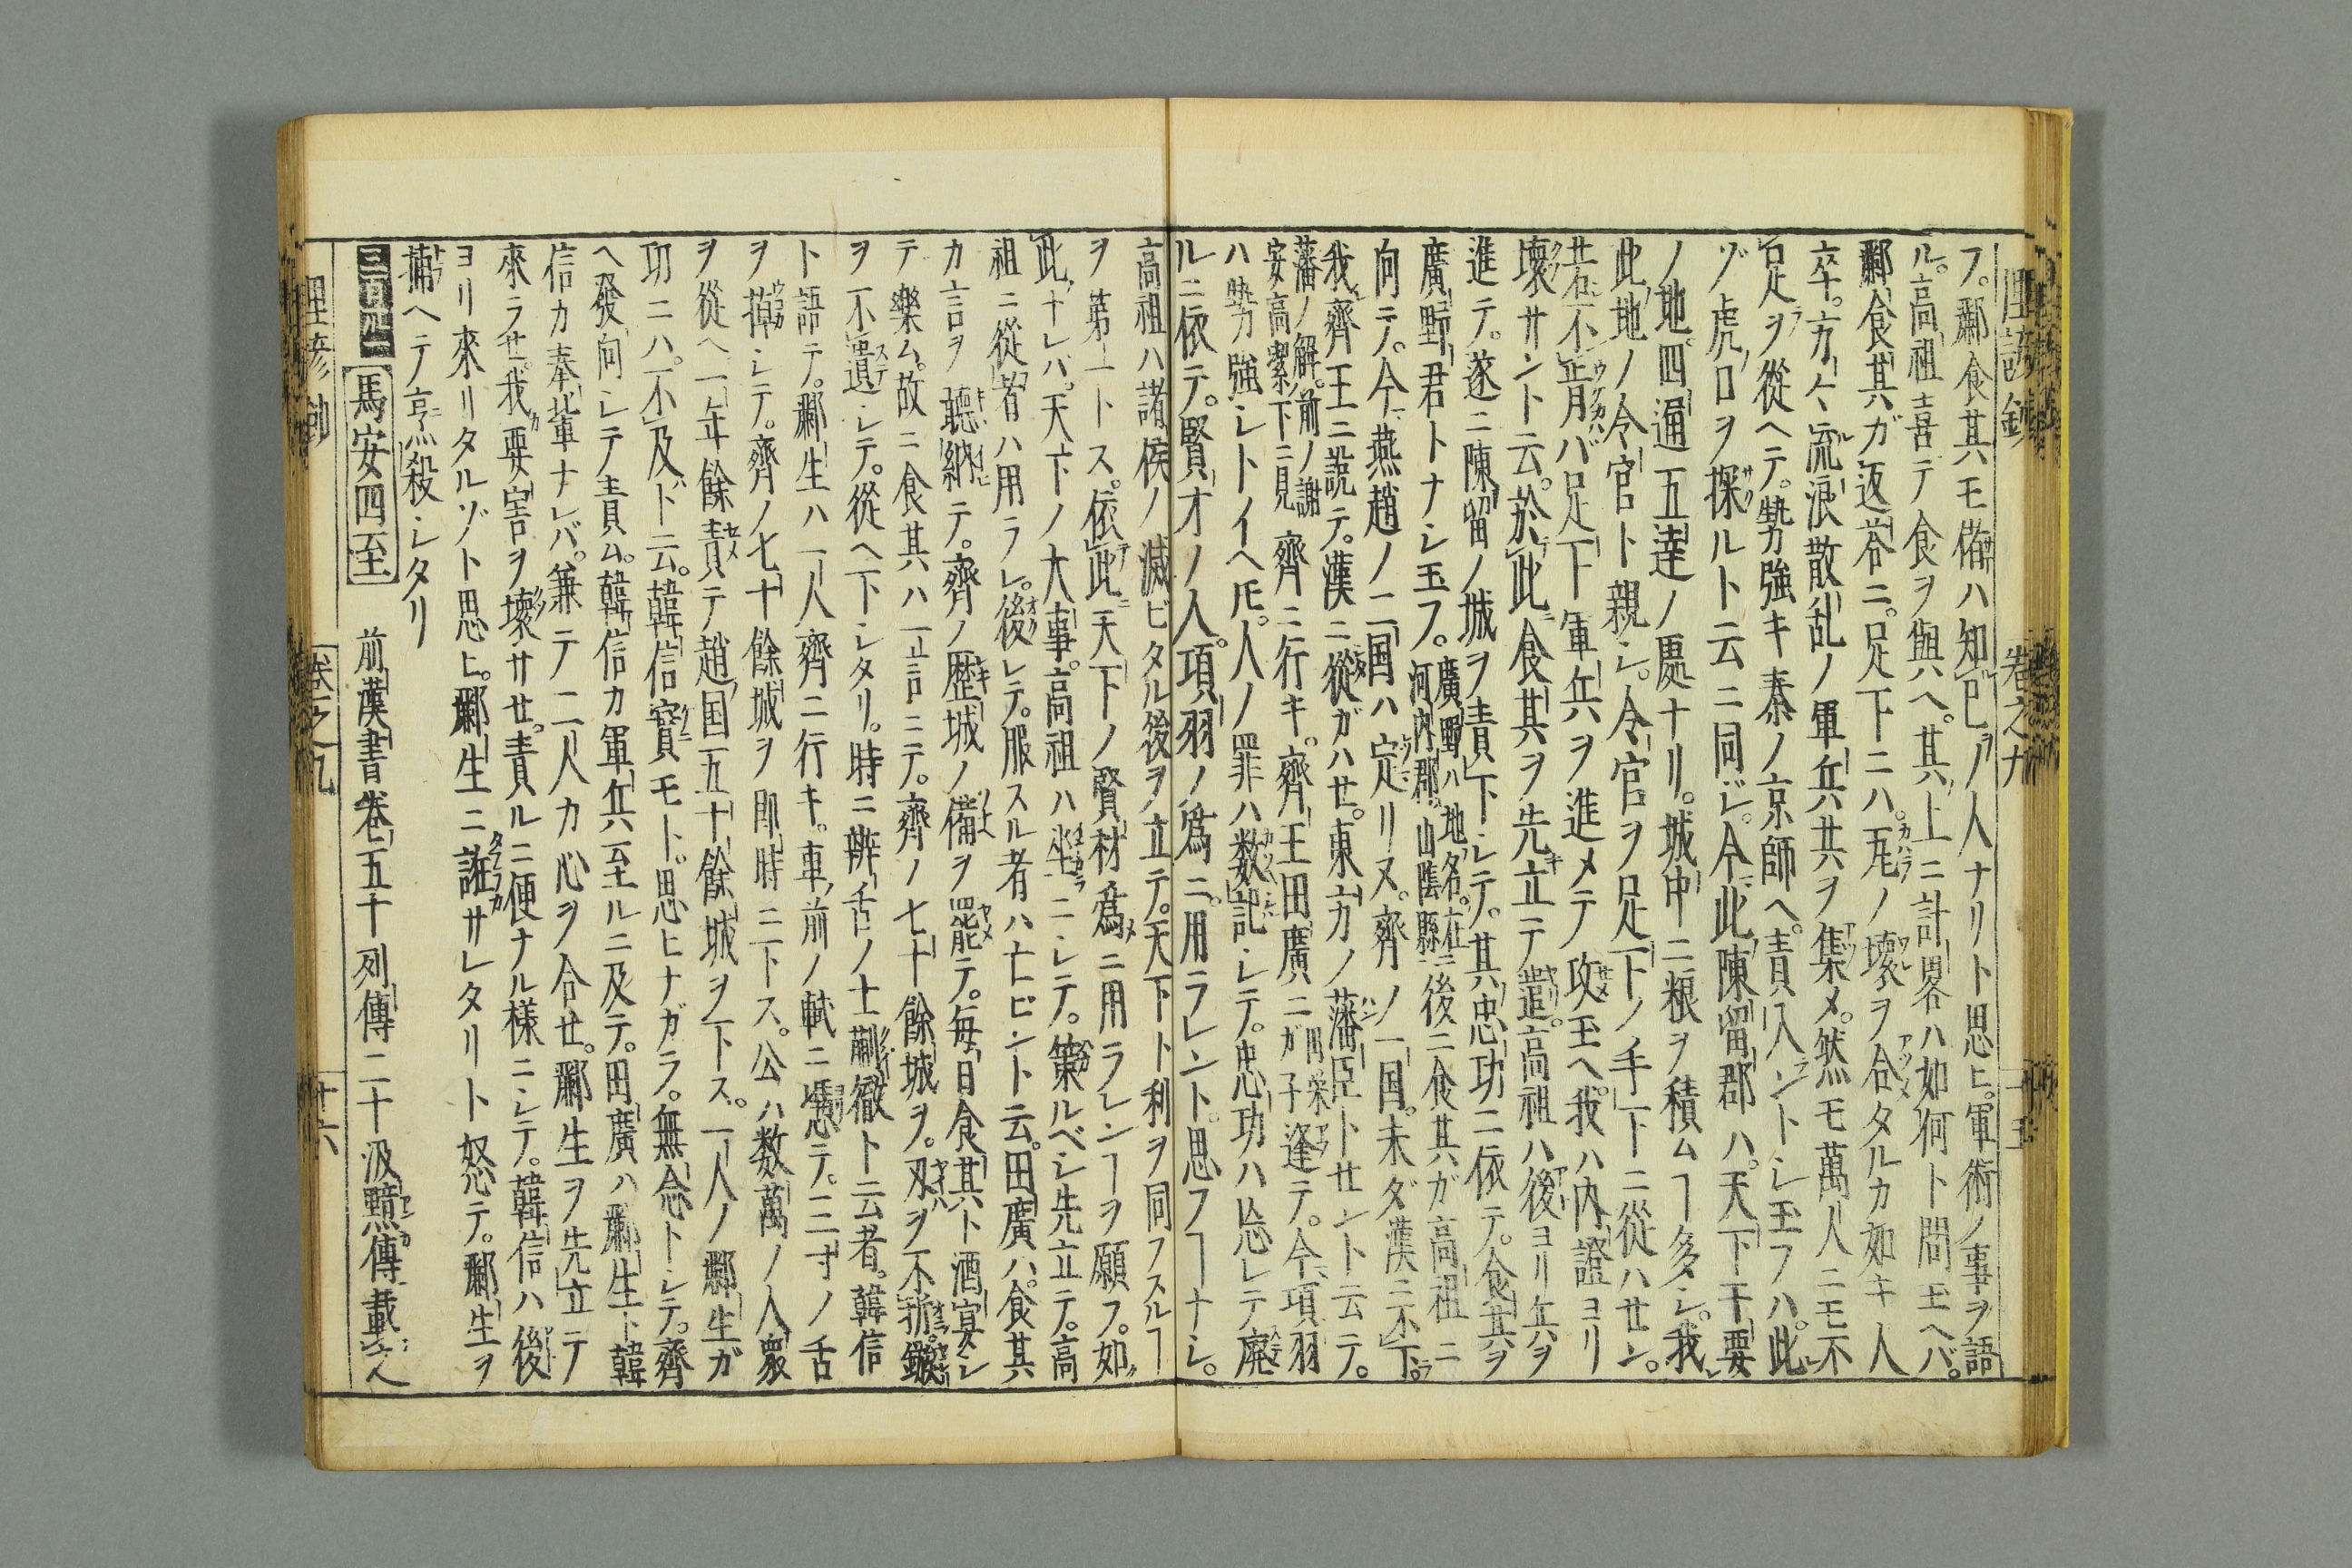 俚諺鈔 卷之九 十五
フ。酈食其モ偹ハ知己ノ人ナリト思ヒ。軍術ノ事ヲ語
ル。高祖喜テ食ヲ與ヘ。其上ニ計畧ハ如何ト問玉ヘバ。
酈食其ガ返荅ニ。足下ニハ。瓦ノ壊ヲ合タルカ如キ人
卒。方々流浪散乱ノ軍兵共ヲ集メ。然モ萬人ニモ不
足ヲ從ヘテ。勢強キ秦ノ京師ヘ。責入ントシ玉フハ。此
ゾ虎口ヲ探ルト云ニ同ジ。今此陳留郡ハ。天下干要
ノ地。四通五達ノ處ナリ。城中ニ粮ヲ積ムヿ多シ。我
此地ノ令官ト親シ。令官ヲ足下ノ手下ニ從ハセン。
若不肯バ足下軍兵ヲ進メテ攻玉ヘ。我ハ内證ヨリ
壊サント云。於此食其ヲ先立テ遣。高祖ハ後ヨリ兵ヲ
進テ。遂ニ陳留ノ城ヲ責下シテ。其忠功ニ依テ。食其ヲ
廣野君トナシ玉フ。廣野ハ地名。在河内郡。山陰縣ニ後ニ食其ガ高祖ニ
向テ。今燕趙ノ二国ハ定リヌ。齊ノ一国。未ダ漢ニ不下。
我齊王ニ説テ。漢ニ從ガハせ。東方ノ藩臣トせント云テ。
藩ノ解。前ノ謝安高潔下ニ見齊ニ行キ。齊王田廣ニ田栄ガ子逢テ。今項羽
ハ勢強シトイヘ𪜈。人ノ罪ハ数記シテ。忠功ハ忘レテ廃
ルニ依テ。賢才ノ人。項羽ノ為ニ。用ラレント。思フヿナシ。
高祖ハ諸侯ノ滅ビタル後ヲ立テ。天下ト利ヲ同フスルヿ
ヲ第一トス。依此天下ノ賢材為ニ用ラレンヿヲ願フ。如
此ナレバ。天下ノ大事。高祖ハ坐ニシテ。策ルベシ先立テ。高
祖ニ從者ハ用ラレ。後レテ。服スル者ハ亡ビント云。田廣ハ。食其
カ言ヲ聽納テ。齊ノ歴城ノ備ヲ罷テ。毎日食其ト酒宴シ
テ樂ム。故ニ食其ハ一言ニテ。齊ノ七十餘城ヲ。刃ヲ不折。鏃
ヲ不遺シテ。從ヘ下シタリ。時ニ辨舌ノ士蒯徹ト云者。韓信
ト語テ。酈生ハ一人齊ニ行キ。車前ノ軾ニ憑テ。三寸ノ舌
ヲ掉シテ。齊ノ七十餘城ヲ即時ニ下ス。公ハ数萬ノ人衆
ヲ從ヘ一年餘責テ趙国五十餘城ヲ下ス。一人ノ酈生ガ
功ニハ。不及ト云。韓信實モト。思ヒナガラ。無念トシテ。齊
ヘ發向シテ責ム。韓信カ軍兵至ルニ及テ。田廣ハ酈生ト韓
信カ奉輩ナレバ。兼テ二人カ心ヲ合せ。酈生ヲ先立テ
來ラせ。我要害ヲ壊サせ。責ルニ便ナル様ニシテ。韓信ハ後
ヨリ來リタルゾト思ヒ。酈生ニ誑サレタリト怒テ。酈生ヲ
捕ヘテ烹殺シタリ
馬安四至 前漢書卷五十列傳二十汲黯傳載之
俚諺鈔 卷之九 十六